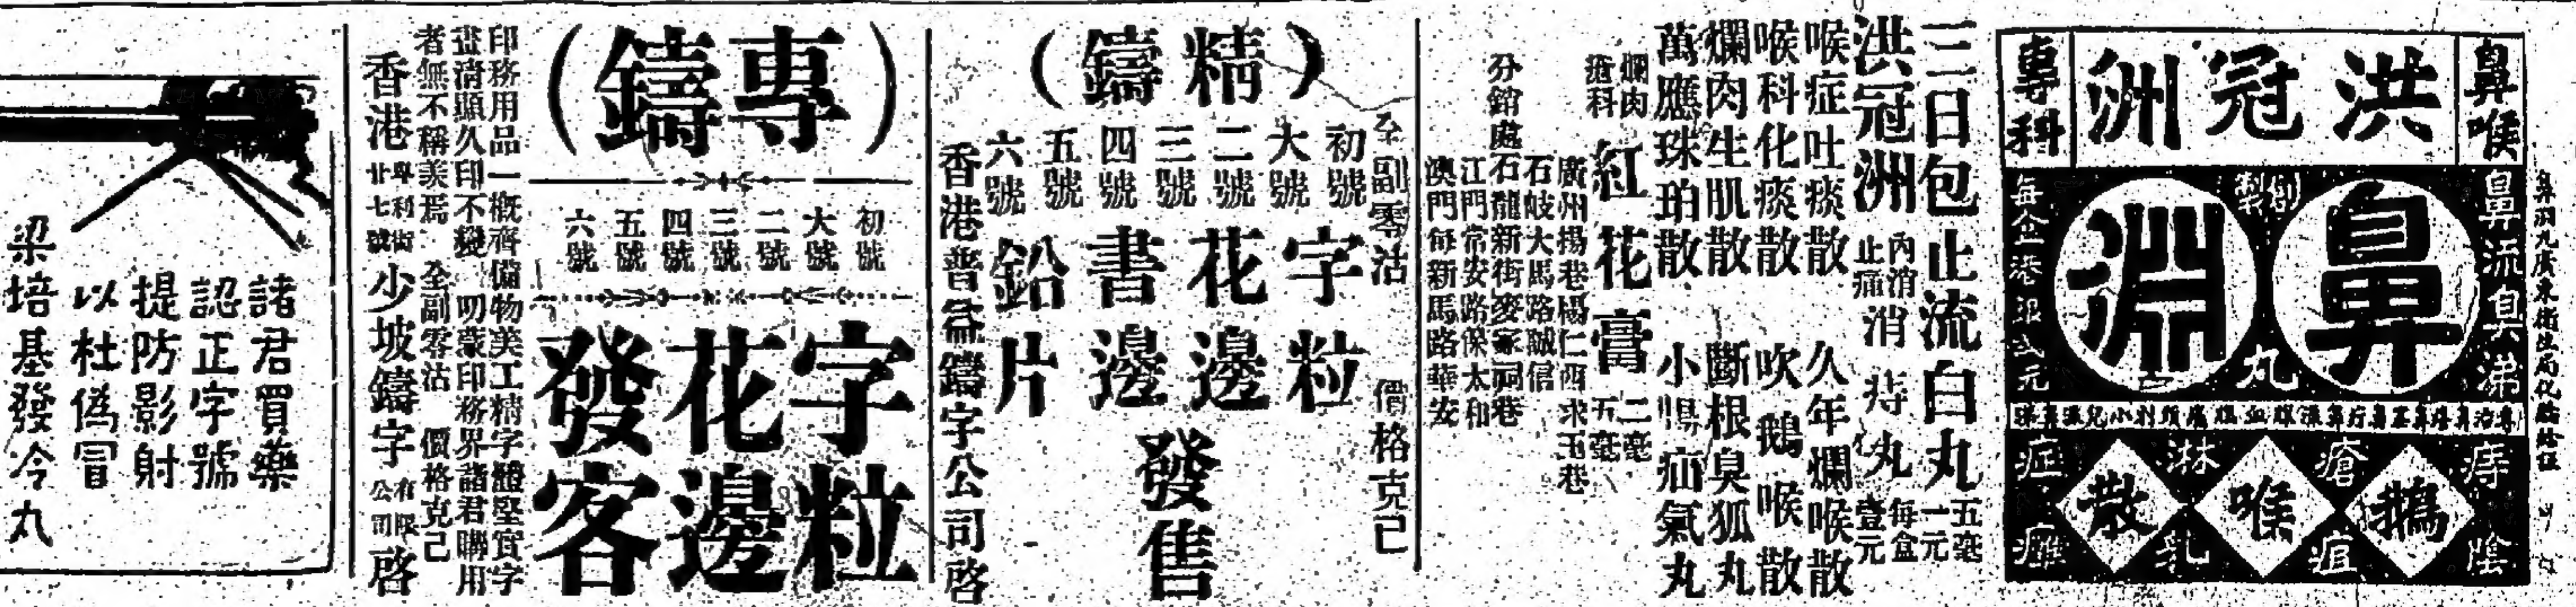 鼻喉
專科
洪冠洲
鼻淵丸
創製
鼻流臭涕
鵝喉散
三日包止流白丸 五毫 一元
洪冠洲 內消 止痛 消痔丸 每盒 壹元
喉症吐痰散 久年爛喉散
喉科化痰散 吹鵝喉散
爛肉生肌散 斷根臭狐丸
萬應珠珀散 小腸疝氣丸
爛肉 瘡科 紅花膏 二毫 五毫
分銷處
廣州揚巷楊仁西求玉巷
石岐大馬路誠信
石龍新街麥家祠巷
江門常安路保太和
澳門新馬路華安
(精鑄)
全副零沽 價格克己
初號 大號 二號 三號 四號 五號 六號
字粒
花邊
書邊
鉛片
發售
香港普益鑄字公司啓
(專鑄)
初號 大號 二號 三號 四號 五號 六號
字粒
花邊
發客
印務用品一概齊備物美工精字體堅實字
畫清顯久印不變 叨蒙印務界諸君購用
者無不稱羨焉 全副零沽 價格克己
香港 卑利街 廿七號 少坡鑄字 有限 公司 啓
諸君買藥
認正字號
提防影射
以杜僞冒
梁培基發冷丸